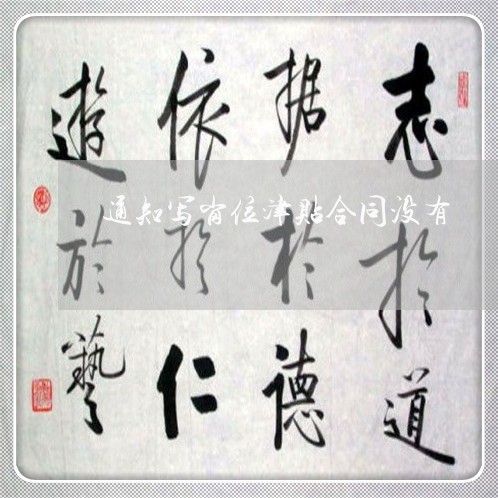 志於道
据於德
依於仁
遊於藝
通知写岗位津贴合同没有